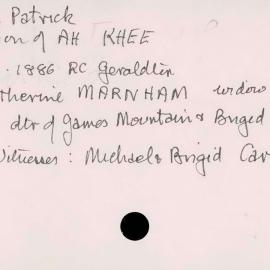 Patrick
on of AH KHEE
. 1886 RC Geraldtn
therine MARNHAM widow
dtr of James Mountain & Briged
Witnesses : Michael & Brigid Car